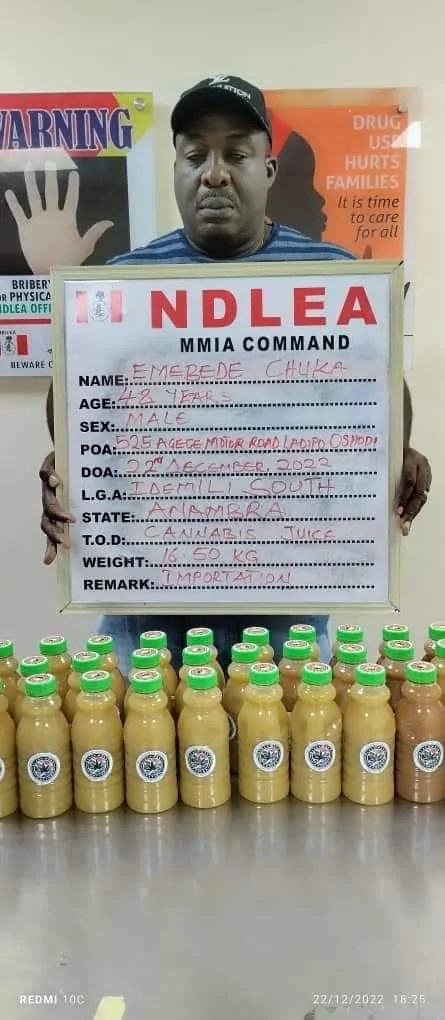 WARNING
BRIBERY
OR PHYSICA
NDLEA OFFI
BEWARE
DRUG
USE
HURTS
FAMILIES
It is time
to care
for all
NDLEA
MMIA COMMAND
NAME: EMEBEDE CHUKA
AGE: 48 YEARS
SEX: MALE
POA: 525 AGEGE MOTOR ROAD LADIPO, OSHODI
DOA: 22nd DECEMBER, 2022
L.G.A: IDEMILI SOUTH
STATE: ANAMBRA
T.O.D: CANNABIS JUICE
WEIGHT: 16.50 KG
REMARK: IMPORTATION
REDMI 10C
22/12/2022 18:25